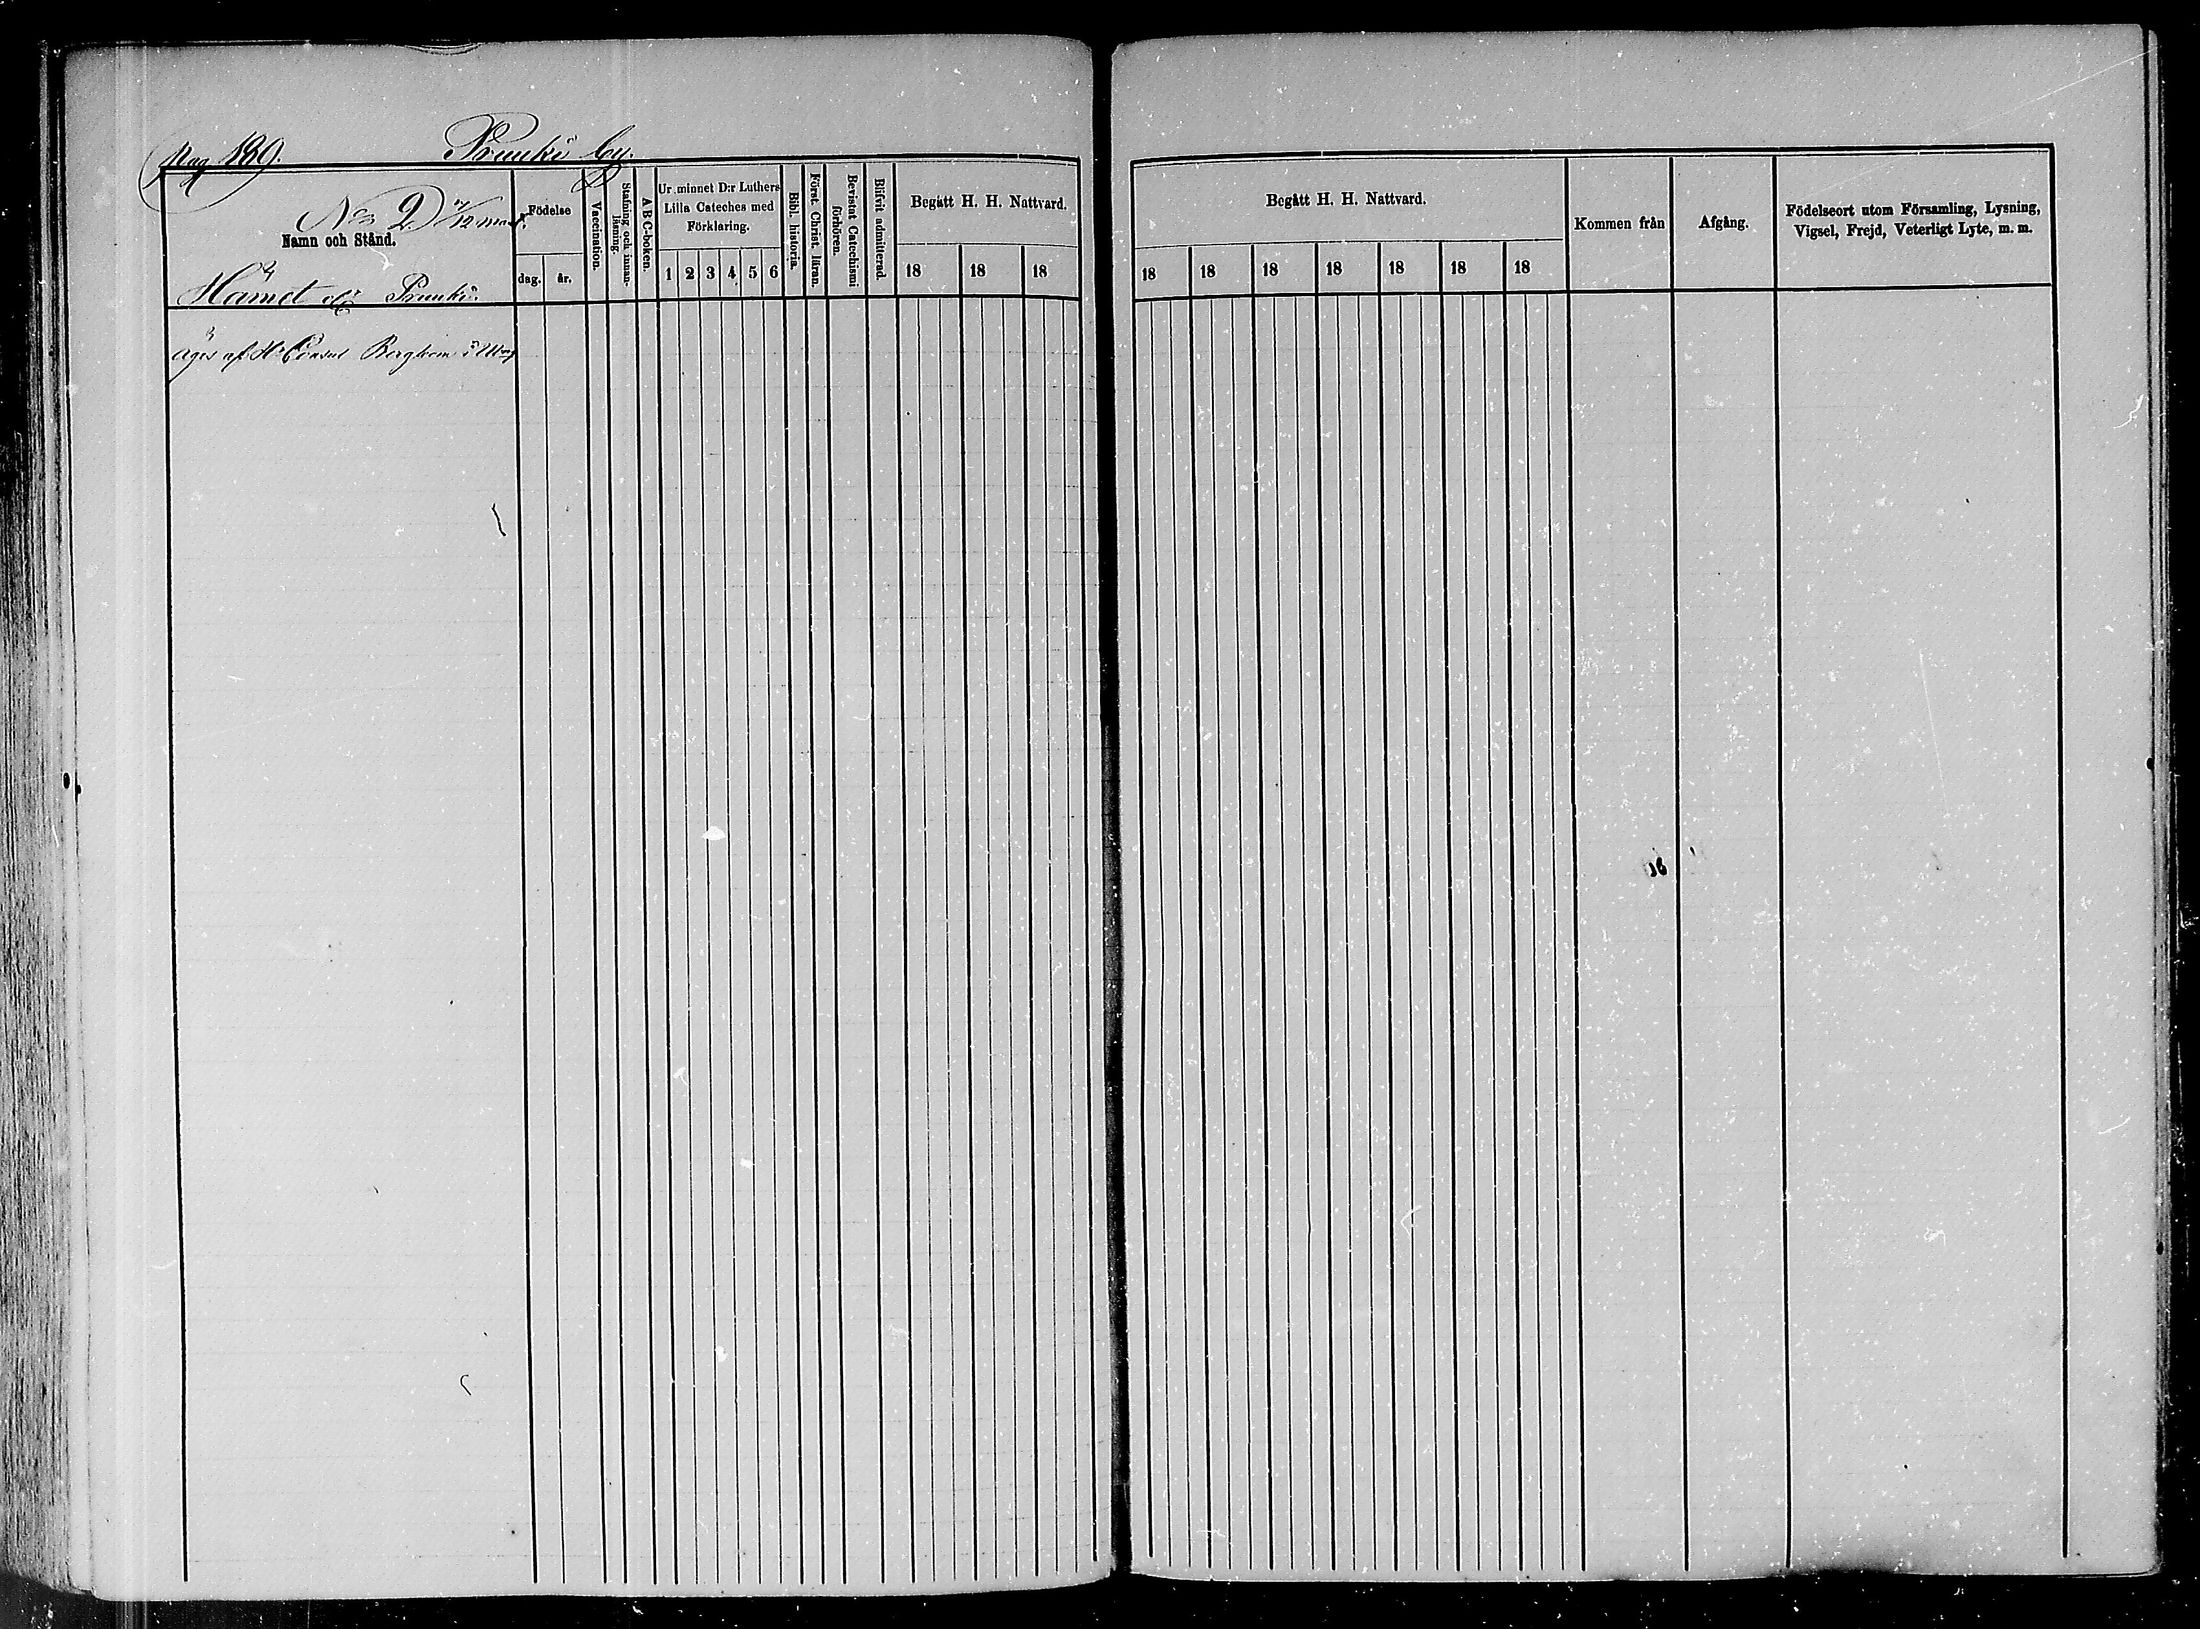 Pag 189. Pruuki by.
No 2. 7/12 mant.
Namn och Stånd.
Hämet el. Pruuki.
Födelse
dag. år.
Vaccination.
Stafning och innan-
läsning.
A B C-boken.
Ur minnet D:r Luthers
Lilla Cateches med
Förklaring.
1 2 3 4 5 6
Bibl. historia.
Först. Christ. läran.
Bevistat Catechismi
förhören.
Blifvit admitterad.
Begått H. H. Nattvard.
18 18 18
äges af Hr Consul Bergbom i
Begått H. H. Nattvard.
18 18 18 18 18 18 18
Kommen från
Afgång.
Födelseort utom Församling, Lysning,
Vigsel, Frejd, Veterligt Lyte, m. m.